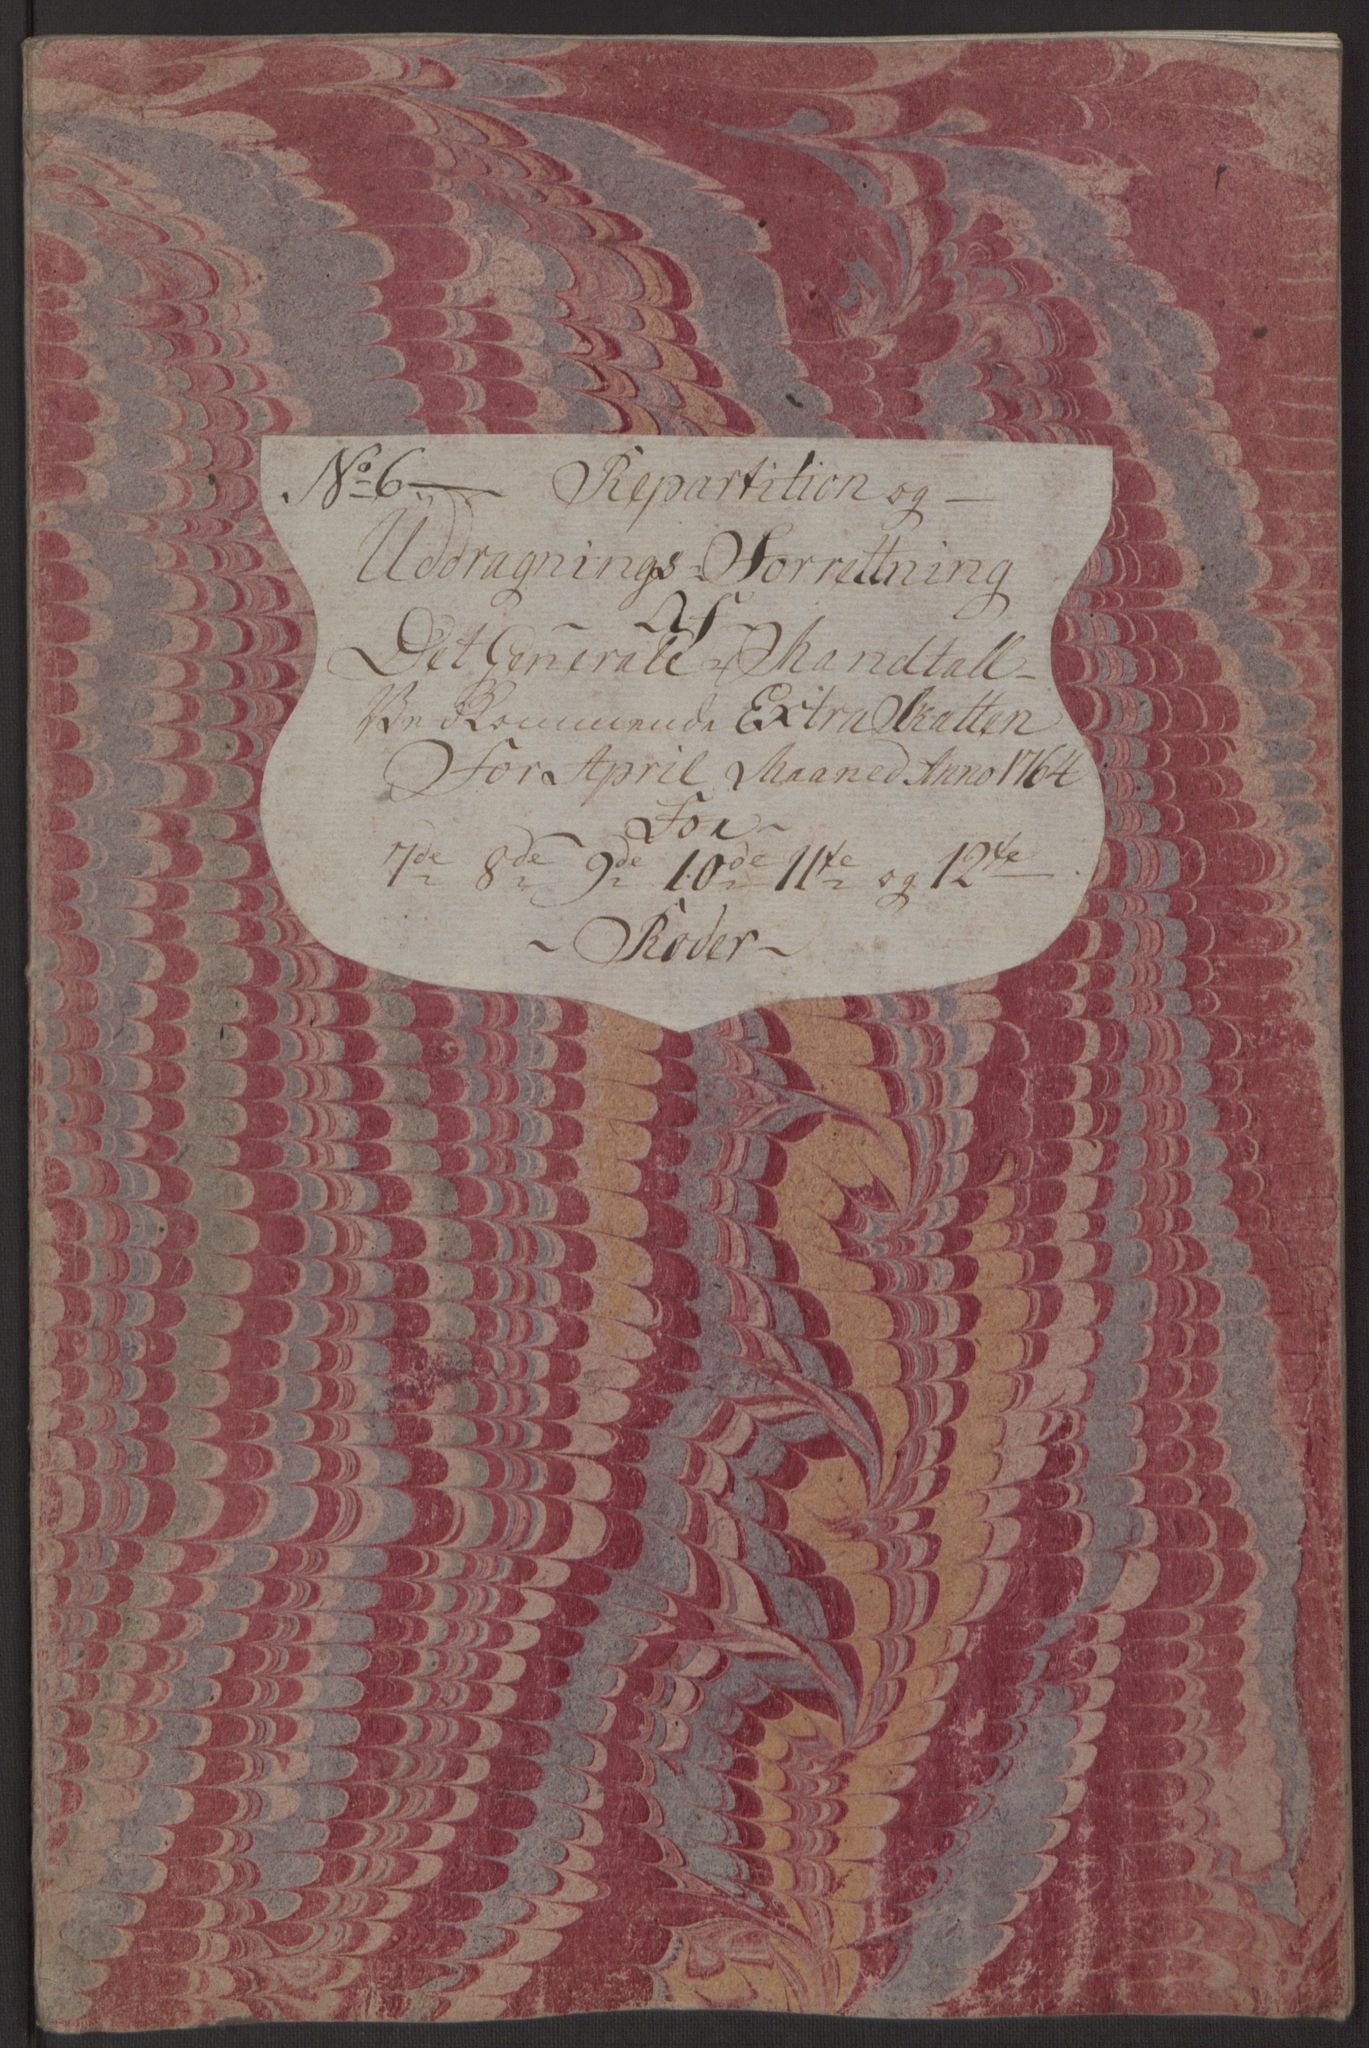 No 6 — Repartition og —
Uddragnings-Forrettning
Af
Det Generale Mandtall
Ve Kommende Extra Skatten
For April Maaned Anno 1764
For
7de 8de 9de 10de 11te og 12te
~ Roder ~